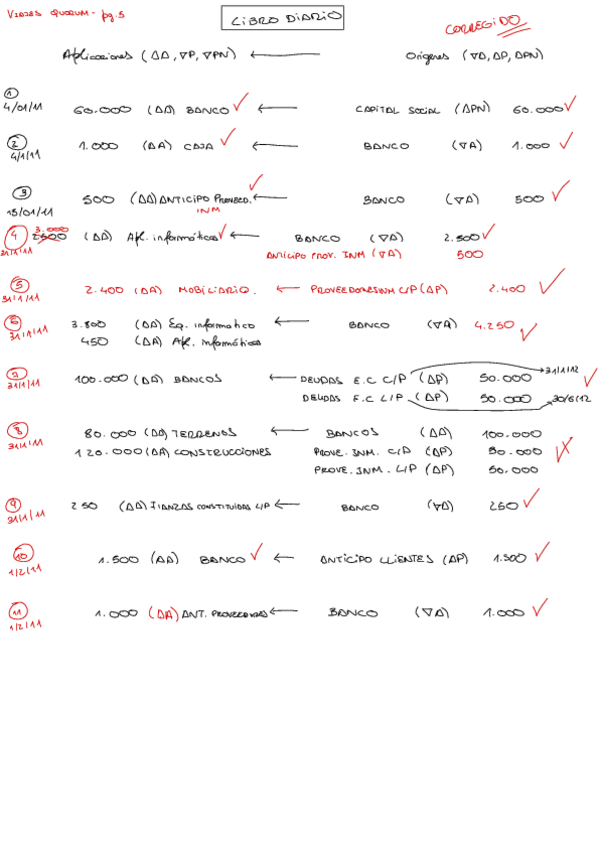 VIAJES QUORUM - pg.5
LIBRO DIARIO
CORREGIDO
Aplicaciones (ΔA, ∇P, ∇PN) ← Orígenes (∇A, ΔP, ΔPN)
① 4/01/11 60.000 (ΔA) BANCO ✓ ← CAPITAL SOCIAL (ΔPN) 60.000 ✓
② 4/1/11 1.000 (ΔA) CAJA ✓ ← BANCO (∇A) 1.000 ✓
③ 15/01/11 500 (ΔA) ANTICIPO PROVEED. ✓ ← BANCO (∇A) 500 ✓
INM
④ 31/1/11 3.000 2500 (ΔA) Apl. informáticas ✓ ← BANCO (∇A) 2.500 ✓
ANTICIPO PROV. INM (∇A) 500
⑤ 31/1/11 2.400 (ΔA) MOBILIARIO. ← PROVEEDORES INM C/P (ΔP) 2.400 ✓
⑥ 31/1/11 3.800 (ΔA) Eq. informatico ← BANCO (∇A) 4.250 ✓
450 (ΔA) Apl. informáticas
⑦ 31/1/11 100.000 (ΔA) BANCOS ← DEUDAS E.C C/P (ΔP) 50.000 → 31/1/12 ✓
DEUDAS E.C L/P (ΔP) 50.000 → 30/6/12
⑧ 31/1/11 80.000 (ΔA) TERRENOS ← BANCOS (ΔA) 100.000
120.000 (ΔA) CONSTRUCCIONES PROVE. INM. C/P (ΔP) 50.000
PROVE. INM. L/P (ΔP) 50.000
⑨ 31/1/11 250 (ΔA) FIANZAS CONSTITUIDAS L/P ← BANCO (∇A) 250 ✓
⑩ 1/2/11 1.500 (ΔA) BANCO ✓ ← ANTICIPO CLIENTES (ΔP) 1.500 ✓
⑪ 1/2/11 1.000 (ΔA) ANT. PROVEEDORES ← BANCO (∇A) 1.000 ✓